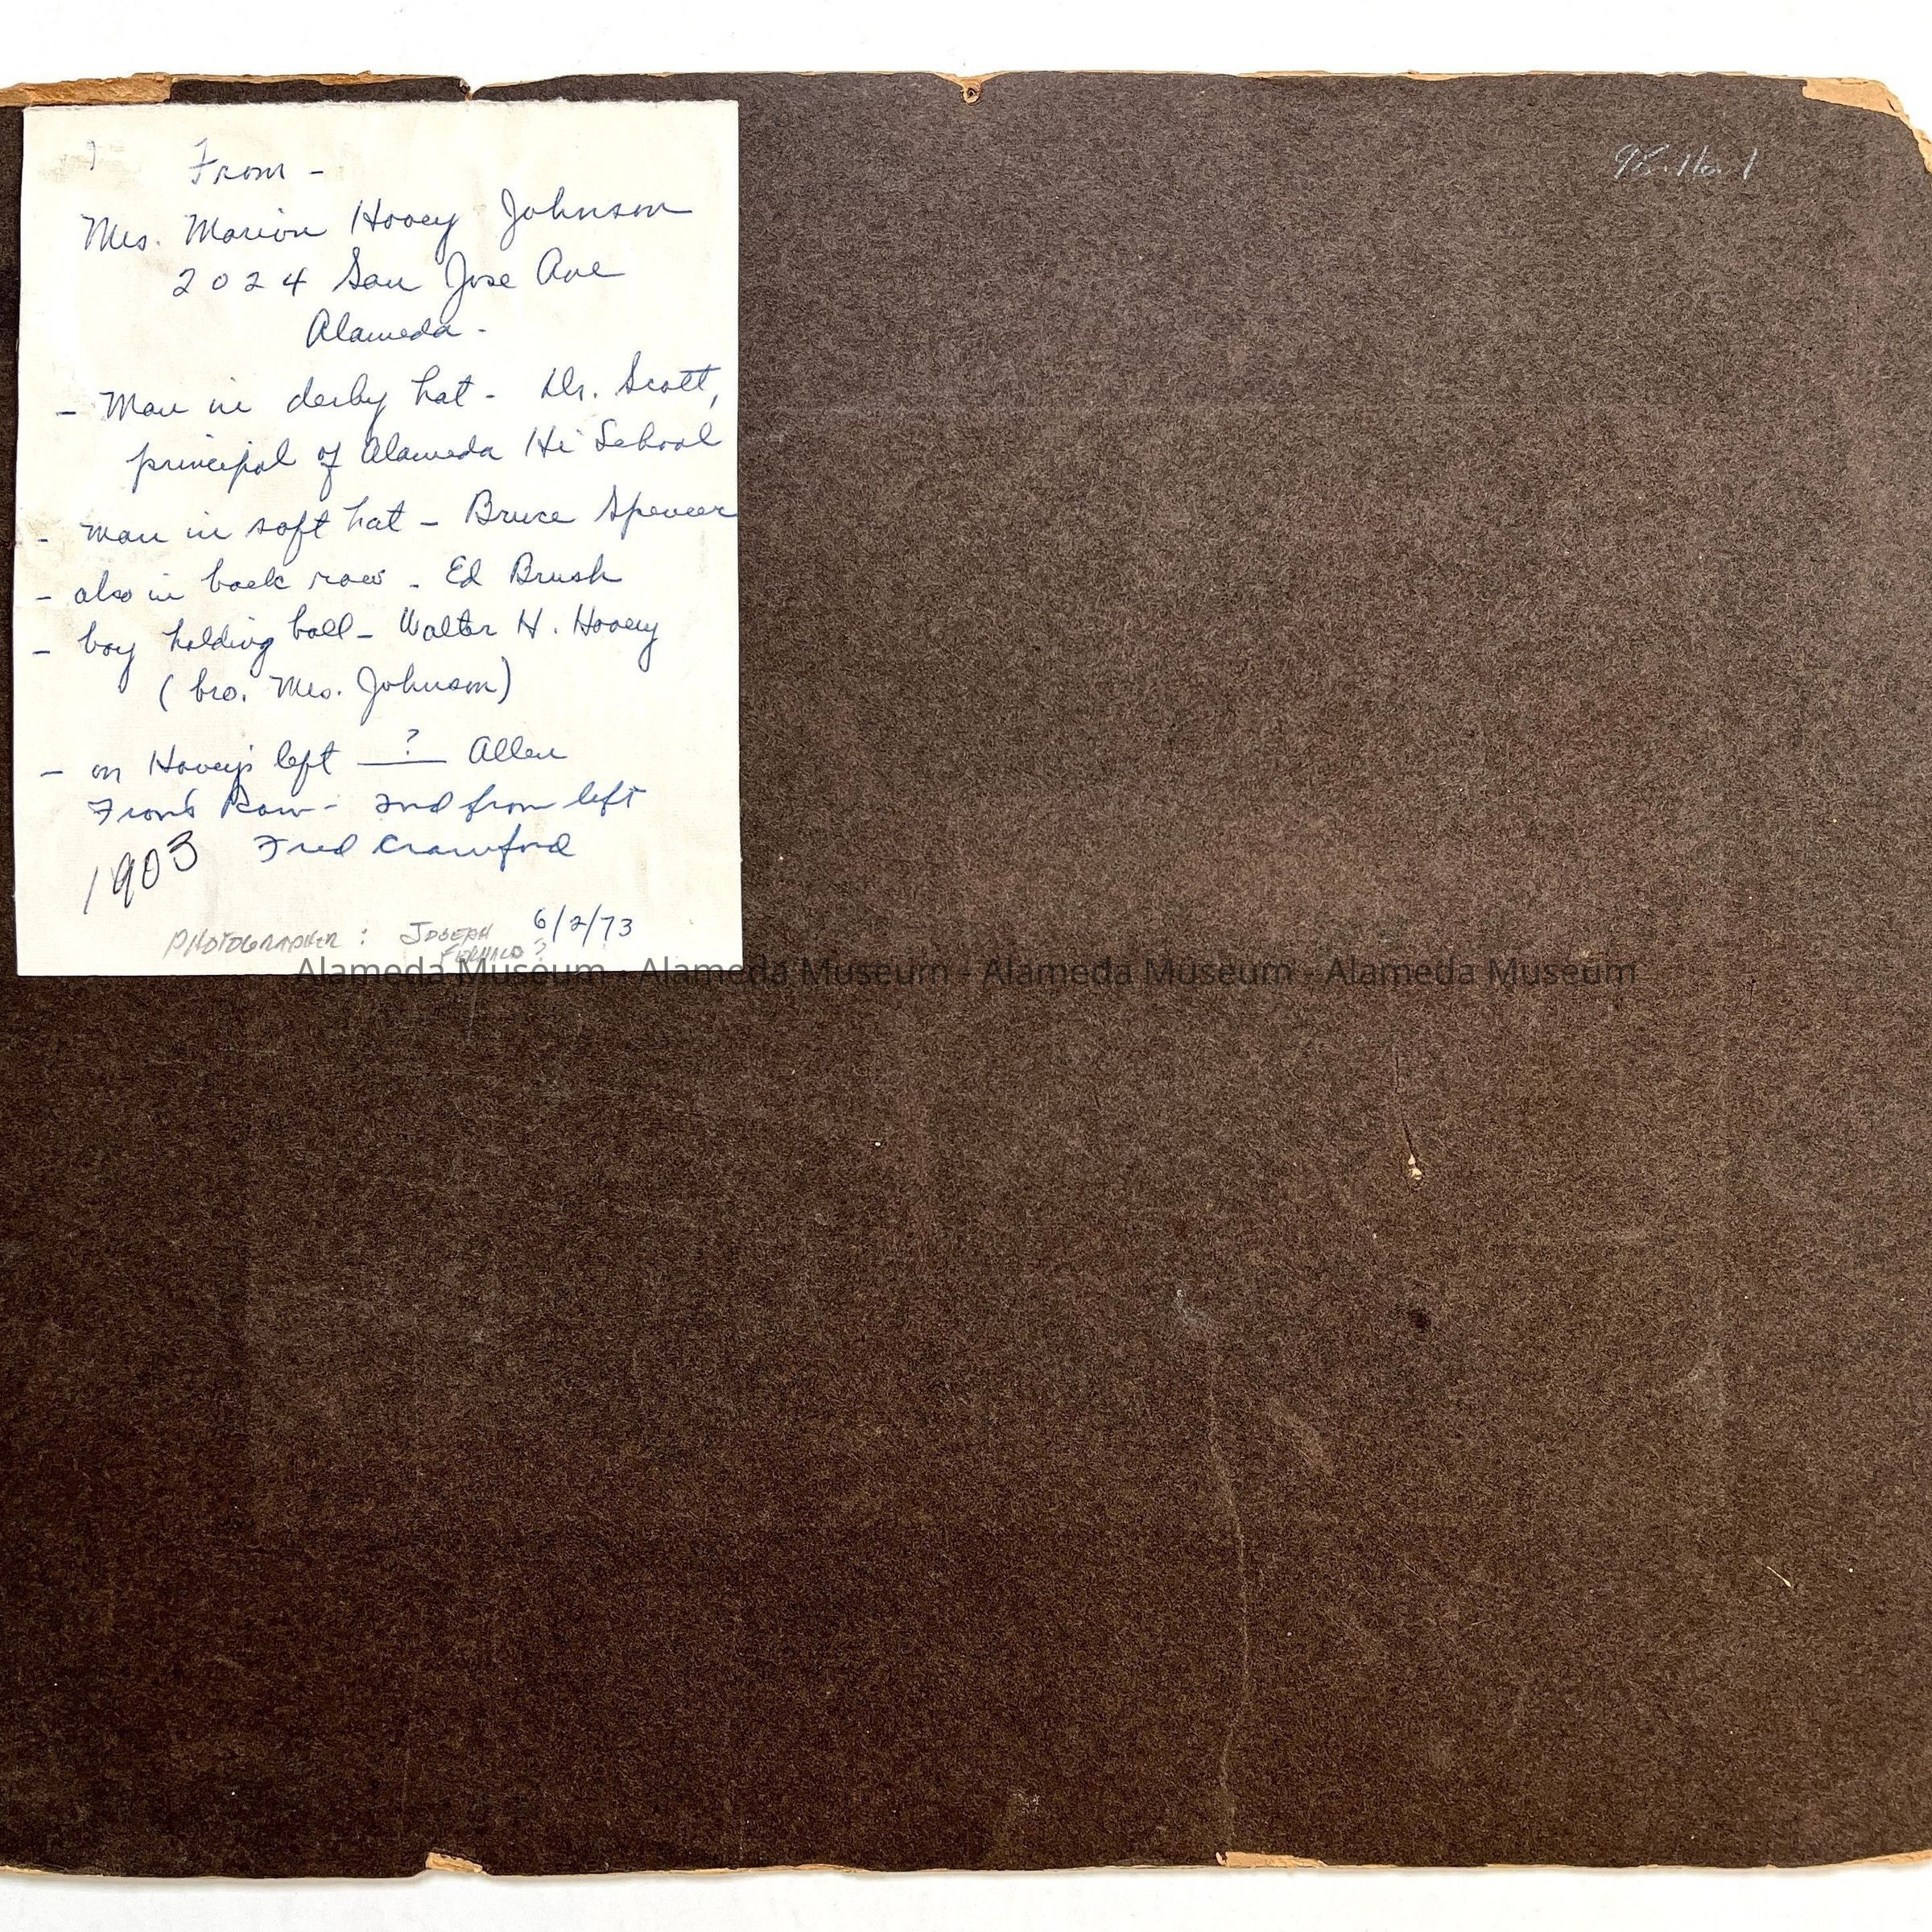 From -
Mrs. Marion Hovey Johnson
2024 San Jose Ave
Alameda.
- Man in derby hat - Dr. Scott,
principal of Alameda Hi School
- Man in soft hat - Bruce Spencer
- also in back row - Ed Brush
- boy holding ball - Walter H. Hovey
(bro. Mrs. Johnson)
- on Hovey's left ? Allen
Front Row - 2nd from left
Fred Crawford
1903
6/2/73
PHOTOGRAPHER: JOSEPH
98.16.1
Alameda Museum - Alameda Museum - Alameda Museum - Alameda Museum